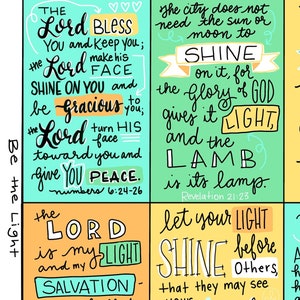 THE
Lord BLESS
YOU and KEEP you;
the Lord make his
FACE
SHINE ON YOU and
be gracious to
you;
the Lord turn HIS
face
toward you and
give YOU PEACE.
numbers 6:24-26
the city does not
need the sun or
moon to
SHINE
on it, for
the Glory of GOD
gives it LIGHT,
and the
LAMB
is its lamp.
Revelation 21:23
Be the Light
the
LORD
is my LIGHT
and my
SALVATION-
let your LIGHT
SHINE before
others,
that they may see